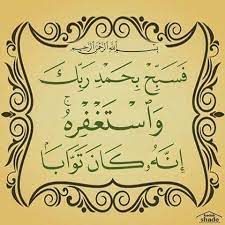 بِسْمِ اللَّهِ الرَّحْمَٰنِ الرَّحِيمِ
فَسَبِّحْ بِحَمْدِ رَبِّكَ
وَاسْتَغْفِرْهُ ۚ
إِنَّهُ كَانَ تَوَّابًا
shade